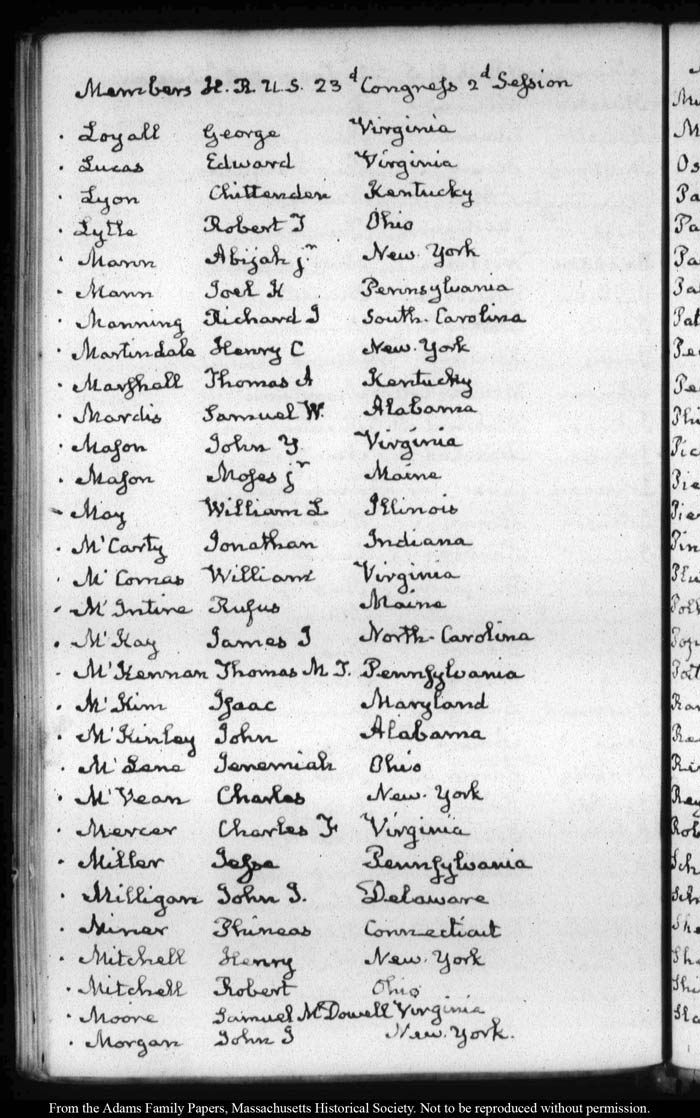 Members H. R. U. S. 23d Congress 2d Session
Loyall George Virginia
Lucas Edward Virginia
Lyon Chittenden Kentucky
Lytle Robert T Ohio
Mann Abijah jr New-York
Mann Joel K Pennsylvania
Manning Richard I South-Carolina
Martindale Henry C New-York
Marshall Thomas A Kentucky
Mardis Samuel W. Alabama
Mason John Y. Virginia
Mason Moses jr Maine
May William L Illinois
M'Carty Jonathan Indiana
M'Comas William Virginia
M'Intire Rufus Maine
M'Kay James I North-Carolina
M'Kennan Thomas M. T. Pennsylvania
M'Kim Isaac Maryland
M'Kinley John Alabama
M'Lene Jeremiah Ohio
M'Vean Charles New-York
Mercer Charles F Virginia
Miller Jesse Pennsylvania
Milligan John J. Delaware
Miner Phineas Connecticut
Mitchell Henry New-York
Mitchell Robert Ohio
Moore Samuel McDowell Virginia
Morgan John J New-York.
From the Adams Family Papers, Massachusetts Historical Society. Not to be reproduced without permission.